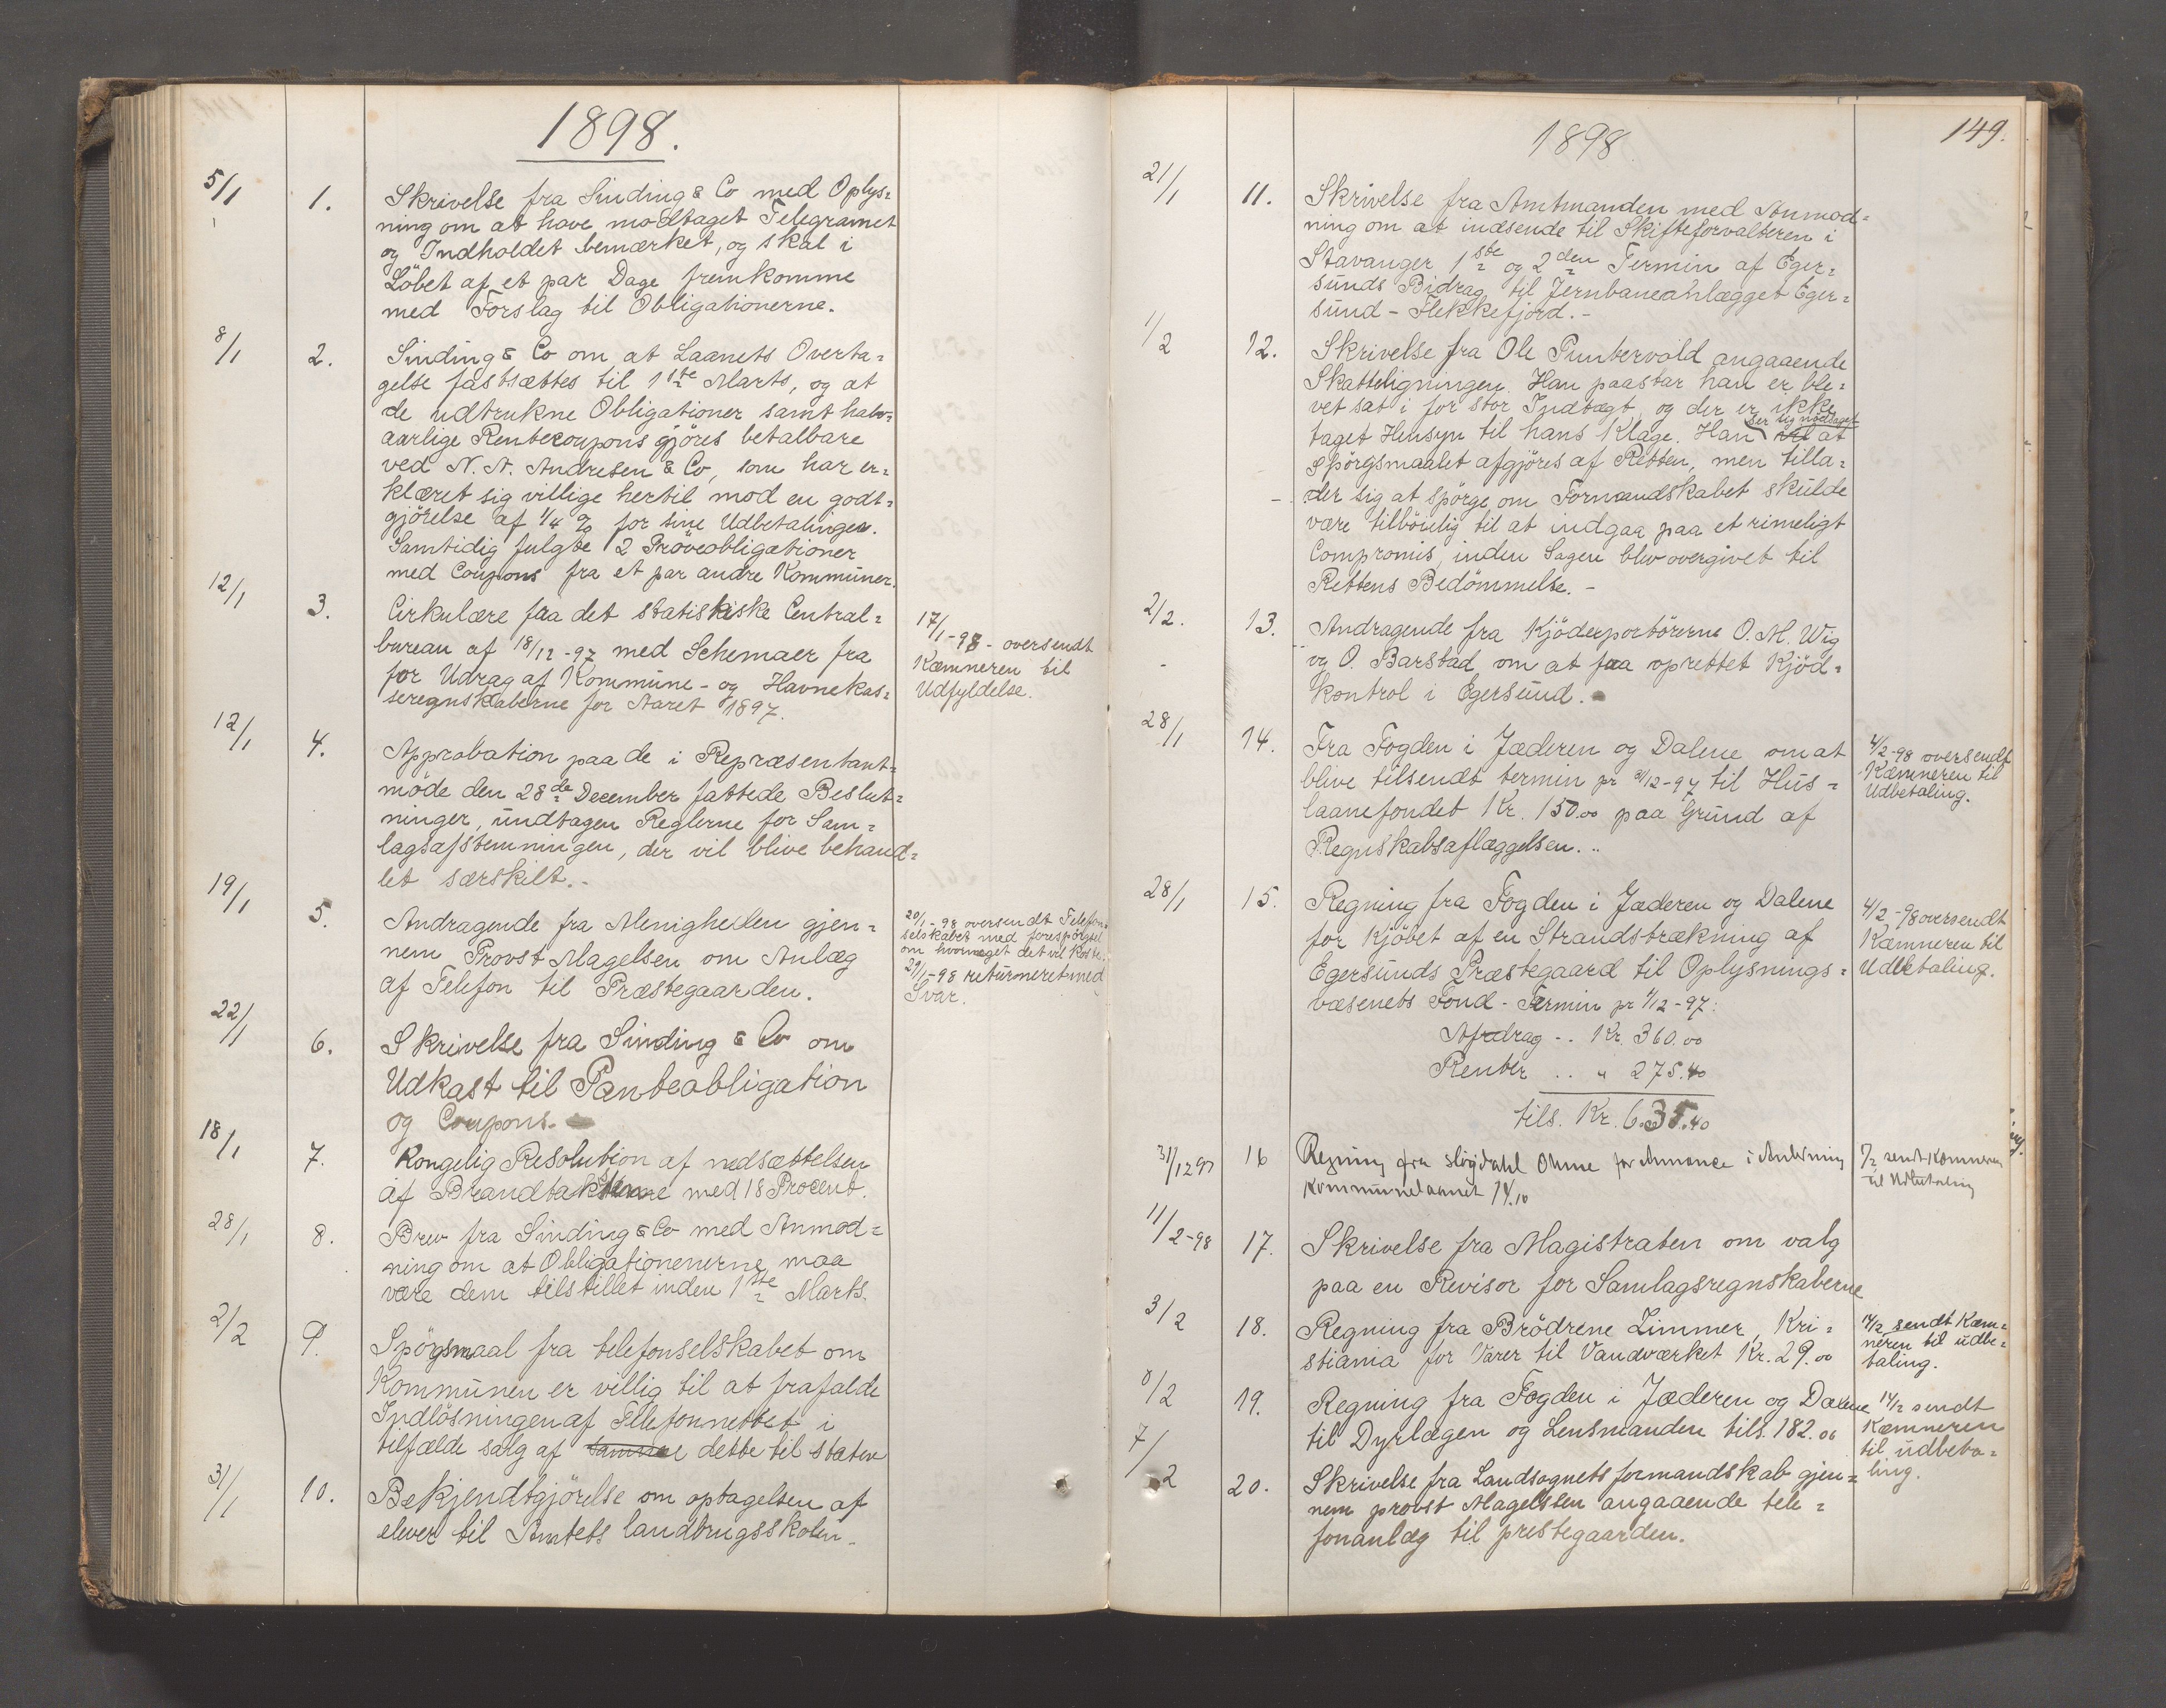 1898.
5/1 1. Skrivelse fra Sinding & Co med Oplys=
ning om at have modtaget Telegramet
og Indholdet bemærket, og skal i
Löbet af et par Dage fremkomme
med Forslag til Obligationerne.
8/1 2. Sinding & Co om at Laanets Overta=
gelse fastsættes til 1ste Marts, og at
de udtrukne Obligationer samt halv=
aarlige Rentecoupons gjöres betalbare
ved N. A. Andresen & Co, som har er=
klæret sig villige hertil mod en godt=
gjörelse af 1/4 % for sine Udbetalinger.
Samtidig fulgte 2 Pröveobligationer
med Coupons fra et par andre Kommuner.
12/1 3. Cirkulære fra det statistiske Central=
bureau af 18/12-97 med Schemaer fra
for Udrag af Kommune- og Havnekas=
seregnskaberne for Aaret 1897.
17/1-98 - oversendt
Kæmneren til
Udfyldelse.
12/1 4. Approbation paa de i Repræsentant=
möde den 28de December fattede Beslut=
ninger, undtagen Reglerne for Sam=
lagsafstemningen, der vil blive behand=
let særskilt.-
19/1 5. Andragende fra Menigheden gjen=
nem Provst Magelsen om Anlæg
af Telefon til Præstegaarden.
20/1-98 oversendt Telefon=
selskabet med forespörgsel
om hvormeget det vil koste.
29/1-98 returneret med
Svar.
22/1 6. Skrivelse fra Sinding & Co om
Udkast til Panteobligation
og Coupons.
18/1 7. Kongelig Resolution af nedsættelsen
af Brandtaksterne med 18 Procent.
28/1 8. Brev fra Sinding & Co med Anmod=
ning om at Obligationenerne maa
være dem tilstillet inden 1ste Marts.
2/2 9. Spögsmaal fra telefonselskabet om
Kommunen er villig til at frafalde
Indlösningen af Telefonnettet i
tilfælde salg af samme dette til staten
31/1 10. Bekjendtgjörelse om optagelsen af
elever til Amtets landbrugsskolen.
149.
1898
21/1 11. Skrivelse fra Amtmanden med Anmod=
ning om at indsende til Skifteforvalteren i
Stavanger 1ste og 2den Termin af Eger=
sunds Bidrag til Jernbaneanlægget Eger=
sund - Flekkefjord.-
1/2 12. Skrivelse fra Ole Puntervold angaaende
Skatteligningen. Han paastar han er ble=
vet sat i for stor Indtægt, og der er ikke
ser sig nødsaget
taget Hensyn til hans Klage. Han vil at
Spörgsmaalet afgjöres af Retten, men tilla=
der sig at spörge om Formandskabet skulde
være tilböielig til at indgaa paa et rimeligt
Compromis, inden Sagen blev overgivet til
Rettens Bedömmelse.-
2/2. 13. Andragende fra Kjöderportörerne O. M. Wig
og O. Barstad om at faa oprettet Kjöd=
kontrol i Egersund.
28/1 14. Fra Fogden i Jæderen og Dalene om at
blive tilsendt termin pr 31/12-97 til Hus=
laanefondet Kr. 150.00 paa Grund af
Regnskabsaflæggelsen...
4/2-98 oversendt
Kæmneren til
Udbetaling.
28/1 15. Regning fra Fogden i Jæderen og Dalene
for Kjöbet af en Strandstrækning af
Egersunds Præstegaard til Oplysnings=
væsenets Fond - Termin pr 1/12-97:
Afdrag .. Kr. 360.00
Renter .. " 275.40
tils. Kr. 635.40
4/2-98 oversendt
Kæmneren til
Udbetaling.
31/12 97 16 Regning fra Ohme for Annonce i Anledning
Kommunelaanet 14.10
7/2 sendt Kæmneren
til Udbetaling
11/2-98 17. Skrivelse fra Magistraten om valg
paa en Revisor for Samlagsregnskaberne
3/2 18. Regning fra Brödrene Zimmer, Kri=
stiania for Varer til Vandværket Kr. 29.00
14/2 sendt Kæm=
neren til udbe=
taling.
8/2 19. Regning fra Fogden i Jæderen og Dalene
til Dyrlægen og Lensmanden tils. 182.06
14/2 sendt
Kæmneren
til udbeta=
ling.
7/2 20. Skrivelse fra Landsognets formandskab gjen=
nem provst Magelssen angaaende tele=
fonanlæg til prestegaarden.